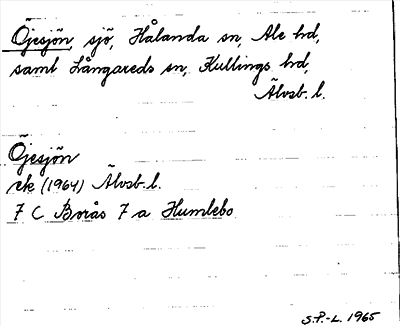 Öjesjön, sjö, Hålanda sn, Ale hd,
saml Långareds sn, Kullings hd,
Älvsb. l.
Öjesjön
ek (1964) Älvsb. l.
7 C Borås 7 a Humlebo
S.P.-L. 1965